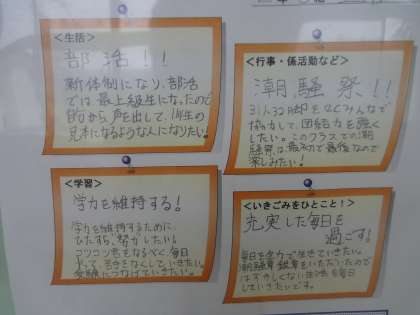 <生活>
部活！！
新体制になり、部活
では、最上級生になったの
的から声を出して、1年生の
見本になるようなんになりたい！
<行事・係活動など>
潮騒祭！！
31人32脚をはじめみんなで
協力して、団結力を強く
したい。このクラスでの潮
騒祭は最初で最後なので
楽しみたい！
<学習>
学力を維持する！
学力を維持するために
ひたすら、努力したい！
コツコツ感をなるべく毎日
やって、苦手をなくしていきたい。
受験につなげていきたい。
<いきごみをひとこと！>
充実した毎日を
過ごす！
毎日を全力で生きていきたい。
潮騒賞銀賞をいただいたので
はずかしくない生活を毎日
していきたいです。